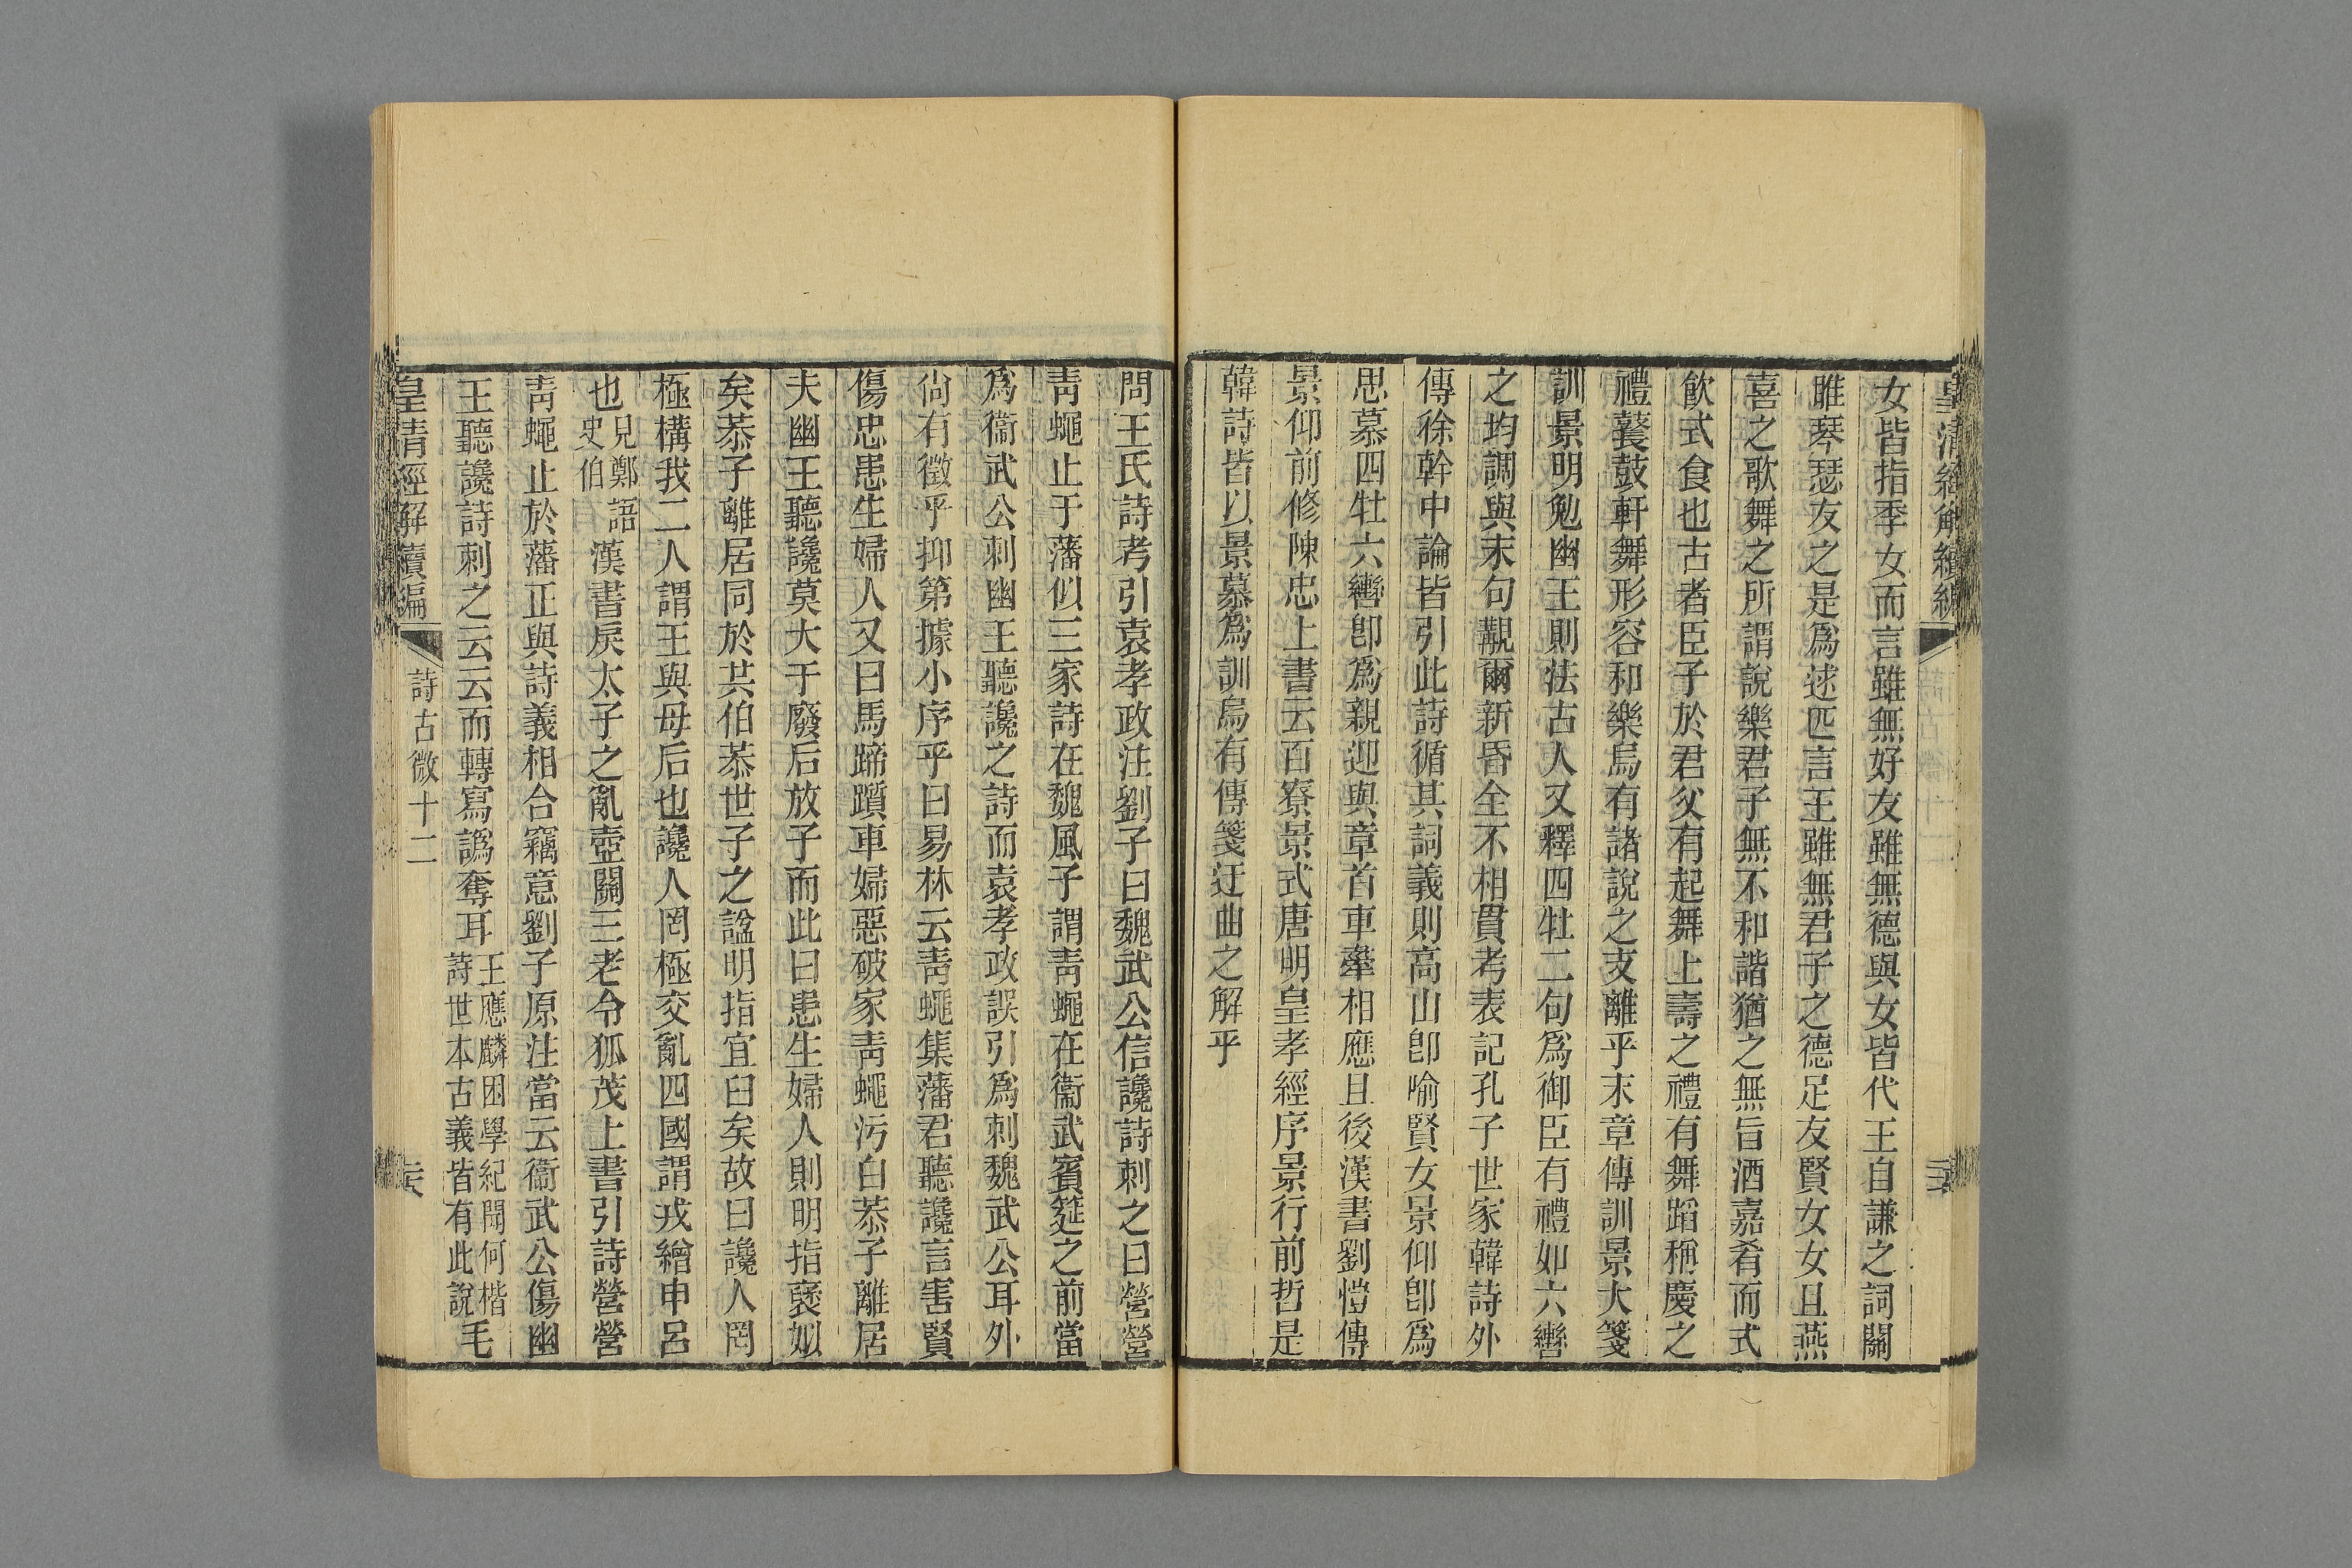 皇淸經解續編
女皆指季女而言雖無好友雖無德與女皆代王自謙之詞關
雎琴瑟友之是爲逑匹言王雖無君子之德足友賢女女且燕
喜之歌舞之所謂說樂君子無不和諧猶之無旨酒嘉肴而式
飮式食也古者臣子於君父有起舞上壽之禮有舞蹈稱慶之
禮鼚鼓軒舞形容和樂烏有諸說之支離乎末章傳訓景大箋
訓景明勉幽王則法古人又釋四牡二句爲御臣有禮如六轡
之均調與末句覯爾新昏全不相貫考表記孔子世家韓詩外
傳徐幹中論皆引此詩循其詞義則高山卽喻賢女景仰卽爲
思慕四牡六轡卽爲親迎與章首車舝相應且後漢書劉愷傳
景仰前修陳忠上書云百寮景式唐明皇孝經序景行前哲是
韓詩皆以景慕爲訓烏有傳箋迂曲之解乎
問王氏詩考引袁孝政注劉子曰魏武公信讒詩刺之曰營營
靑蠅止于藩似三家詩在魏風子謂靑蠅在衞武賓筵之前當
爲衞武公刺幽王聽讒之詩而袁孝政誤引爲刺魏武公耳外
尙有徵乎抑第據小序乎曰易林云靑蠅集藩君聽讒言害賢
傷忠患生婦人又曰馬蹄躓車婦惡破家靑蠅汚白恭子離居
夫幽王聽讒莫大于廢后放子而此曰患生婦人則明指襃姒
矣恭子離居同於共伯恭世子之諡明指宜臼矣故曰讒人罔
極構我二人謂王與母后也讒人罔極交亂四國謂戎繒申呂
也見鄭語史伯漢書戾太子之亂壺關三老令狐茂上書引詩營營
靑蠅止於藩正與詩義相合竊意劉子原注當云衞武公傷幽
王聽讒詩刺之云云而轉寫譌奪耳王應麟困學紀聞何楷詩世本古義皆有此說毛
皇淸經解續編
詩古微十二